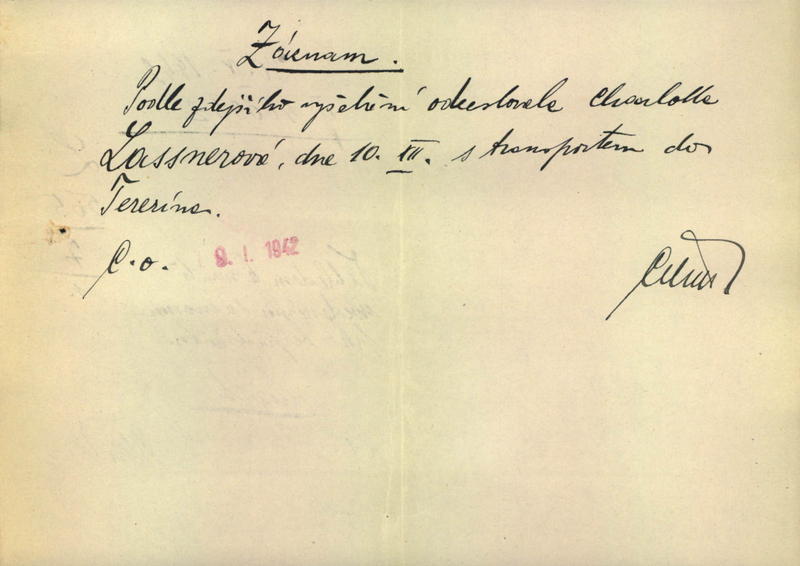 Záznam.
Podle zdejšího vyšetření odcestovala Charlotta
Lassnerová, dne 10. XII. s transportem do
Terezína.
C. o. 9. I. 1942